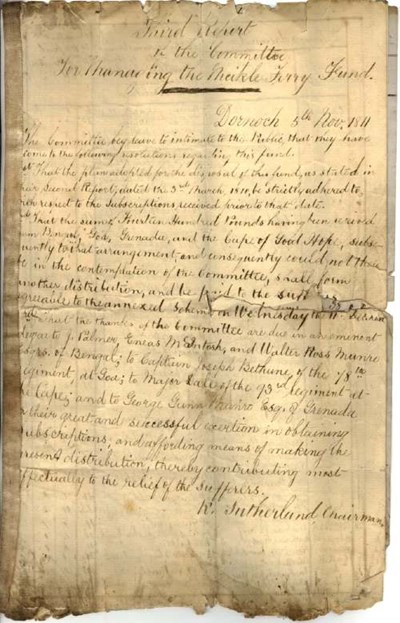 Third Report
by the Committee
For Managing the Meikle Ferry Fund.
Dornoch 5th Nov. 1811
The Committee beg leave to intimate to the Public, that they have
come to the following resolutions regarding this fund.
That the plan adopted for the disposal of this fund, as stated in
their Second Report, dated the 3rd March, 1810, be strictly adhered to
with respect to the Subscriptions received prior to that date.
That the sum of Thirteen Hundred Pounds having been received
from Bengal, Goa, Grenada, and the Cape of Good Hope, subse-
quently to that arrangement, and consequently could not then
be in the contemplation of the Committee, shall form
another distribution, and be paid to the
agreeable to the annexed Scheme on Wednesday the
3rd That the thanks of the Committee are due in an eminent
J. Palmer, Eneas McIntosh, and Walter Ross Munro
Esqrs. of Bengal; to Captain Joseph Bethune, of the 78th
Regiment, at Goa; to Major Dale of the 93rd regiment at
the Cape; and to George Gunn Munro Esq. of Grenada
for their great and successful exertion in obtaining
Subscriptions, and affording means of making the
present distribution, thereby contributing most
effectually to the relief of the sufferers.
R. Sutherland, Chairman